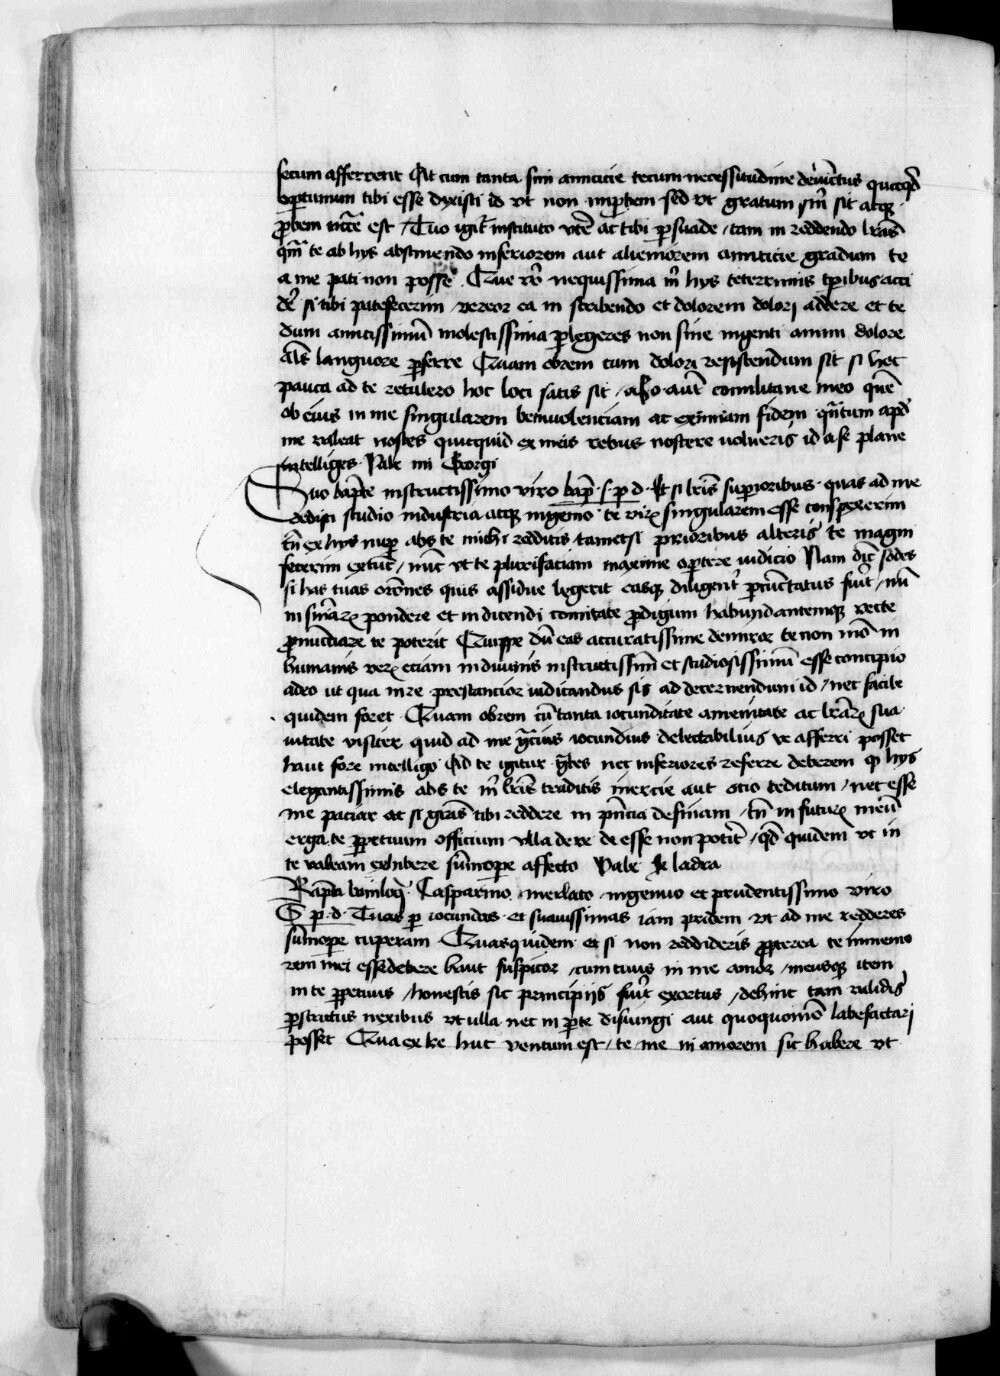 secum afferrent At cum tanta sim amicicie tecum necessitudine deuīctus quicqd̄
optimum tibi esse dyxisti id vt non imꝓbem sed vt gratum sit atqꝫ
ꝓbem est Tuo igit̄ instituto vtē ac tibi ꝑsuade tam in reddendo lr̄as
qm̄ te ab hys absumendo inferiorem aut alienorem amicicie gradum te
a me pati non posse Que vō nequissima hys teterrimis tꝑibus acci
dē si tibi patefecerim vereor ea in scribendo et dolorem dolori addere et te
dum amicissimū molestissima ꝑlegeres non sine ingenti animi dolore
languore ꝑferre Quam obrem cum dolori resistendum sit si hec
pauca ad te retulero hoc loci satis sit aut̄ meo quē
ob eius in me singularem beniuolenciam ac eximiam fidem qn̄tum apd̄
me valeat nosces quicquid ex meis rebus noscere uolueris id a se plane
intelliges Vale mi Georgi
Suo bap̄te instructissimo viro bap̄ s p d Et si lr̄is suꝑioribus quas ad me
dedisti studio industria atqꝫ ingenio te virꝝ singularem esse conspexerim
tn̄ ex hys nuꝑ abs te michi redditis tametsi prioribus alteris te magni
fecerim nūc vt te plurifaciam maxime oportere iudicio Nam dic̄ sodes
si has tuas orōnes quis assidue legerit easqꝫ diligent̄ ꝑcūctatus fuīt nū
in sniārꝝ pondere et in dicendi comitate ꝓdigum habundantemqꝫ recte
ꝓnūciare te poterit Quippe dū eas accuratissime demiror te non mō in
humanis verꝝ eciam in diuinis instructissim̄ et studiosissimū esse concipio
adeo ut qua in re prestancior iudicandus sis ad decernendum id nec facile
quidem foret Quam obrem cū tanta iocunditate amenitate ac lr̄arꝝ sua
uitate visiter quid ad me iocundius delectabilius ve afferri posset
haut fore intelligo Ad te igitur nec inferiores referre deberem qꝫ hys
elegantissimis abs te lr̄is traditis inercie aut ocio deditum nec esse
me paciar at si grās tibi reddere in definiam tn̄ in futurꝝ meū
erga te ꝑpetuum officium vlla de re de esse non potit̄ qd̄ quidem vt in
te valeam exhibere sūmoꝑe affecto Vale
Bap̄ta Casparino merlato ingenuo et prudentissimo viro
S p d Tuas ꝑ iocundas et suauissimas iam pridem vt ad me redderes
sūmoꝑe cuperam Quas quidem et si non reddideris ꝓpterea te inmemo
rem mei esse debere haut suspicor cum tuus in me amor meusqꝫ item
in te ꝑpetuus honestis sic principiis fuīt exortus dehinc tam validis
ꝑstrictus nexibus vt ulla nec in ꝑte disiungi aut quoquomō labefactari
posset Qua ex re huc ventum est te me in amorem sic habere vt